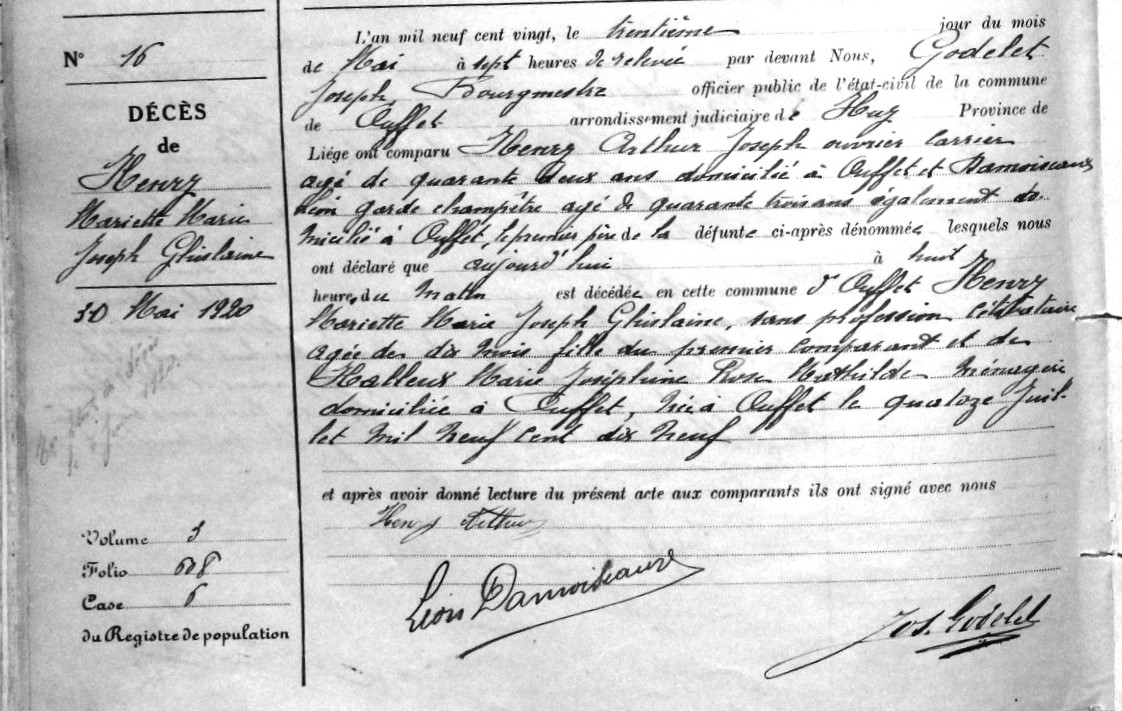 N° 16
DÉCÈS
de
Henry
Mariette Marie
Joseph Ghislaine
30 Mai 1920
Volume 3
Folio 608
Case 6
du Registre de population
L'an mil neuf cent vingt, le trentième jour du mois
de Mai à sept heures de relevée par devant Nous, Godelet
Joseph, Bourgmestre officier public de l'état-civil de la commune
de Ouffet arrondissement judiciaire de Huy Province de
Liége ont comparu Henry Arthur Joseph ouvrier carrier
agé de quarante deux ans domicilié à Ouffet et Damoiseaux
Léon garde champêtre agé de quarante trois ans également do-
micilié à Ouffet, le premier père de la défunte ci-après dénommée lesquels nous
ont déclaré que aujourd'hui à huit
heures du matin est décédée en cette commune d'Ouffet Henry
Mariette Marie Joseph Ghislaine, sans profession célibataire
agée de dix mois fille du premier comparant et de
Halleux Marie Joséphine Rose Mathilde ménagère
domiciliée à Ouffet, née à Ouffet le quatoze Juil-
let mil neuf cent dix neuf
et après avoir donné lecture du présent acte aux comparants ils ont signé avec nous
Henry Arthur
Léon Damoiseaux
Jos. Godelet